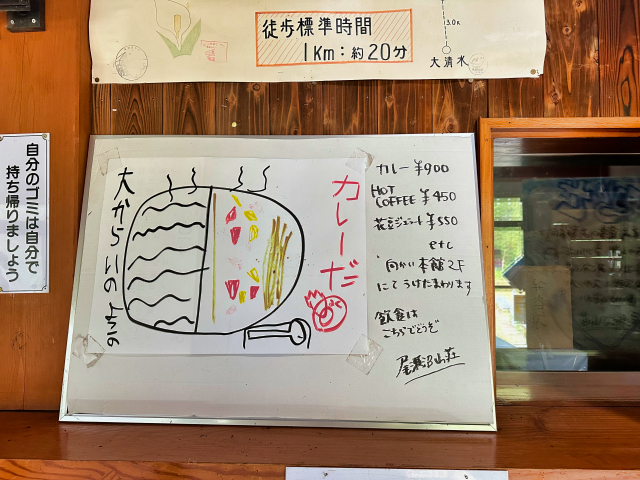 徒歩標準時間
1Km:約20分
3.0K
大清水
自分のゴミは自分で
持ち帰りましょう
カレーだ
カレー ¥900
HOT
COFFEE ¥450
花豆ジェラート ¥550
etc
向かい本館2F
にてうけたまわります
飲食は
こちらでどうぞ
尾瀬沼山荘